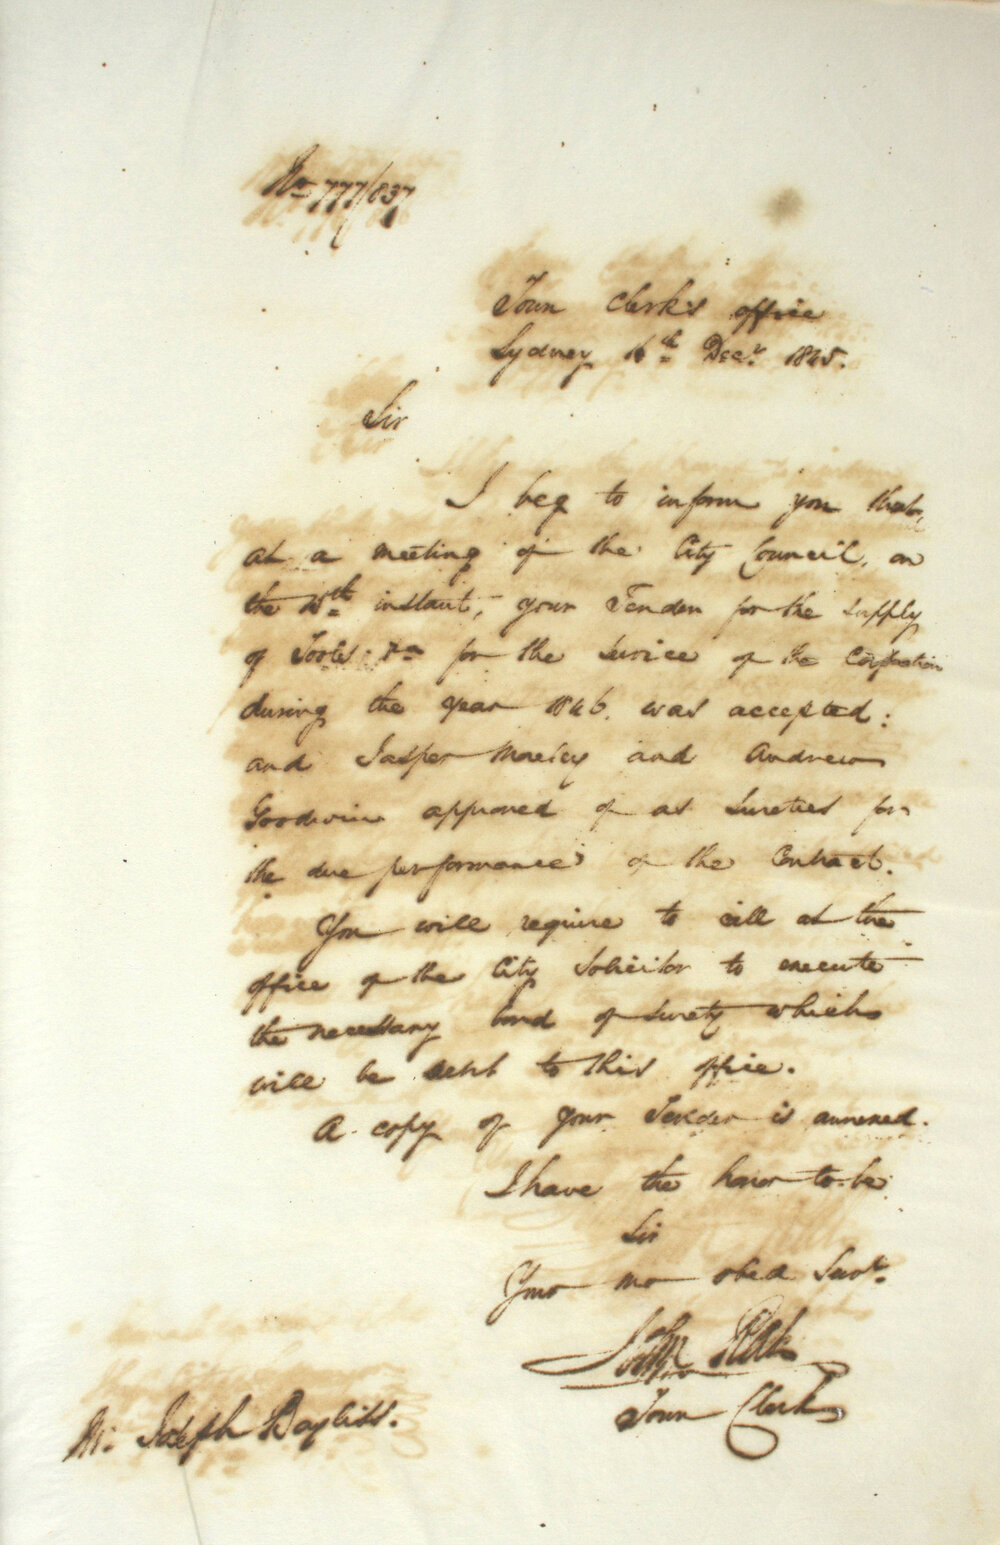 No 777/837
Town Clerk's office
Sydney 16th Decr. 1845.
Sir
I beg to inform you that,
at a meeting of the City Council, on
the 15th instant, your Tender for the supply
of Tools &ca for the service of the Corporation
during the year 1846. was accepted:
and Jasper Morley and Andrew
Goodwin approved of as sureties for
the due performance of the Contract.
You will require to call at the
office of the City Solicitor to execute
the necessary bond of surety which
will be sent to this office.
A copy of your Tender is annexed.
I have the honor to be
Sir
Your mo obed Servt.
John Rae
Town Clerk
Mr. Joseph Bayliss.